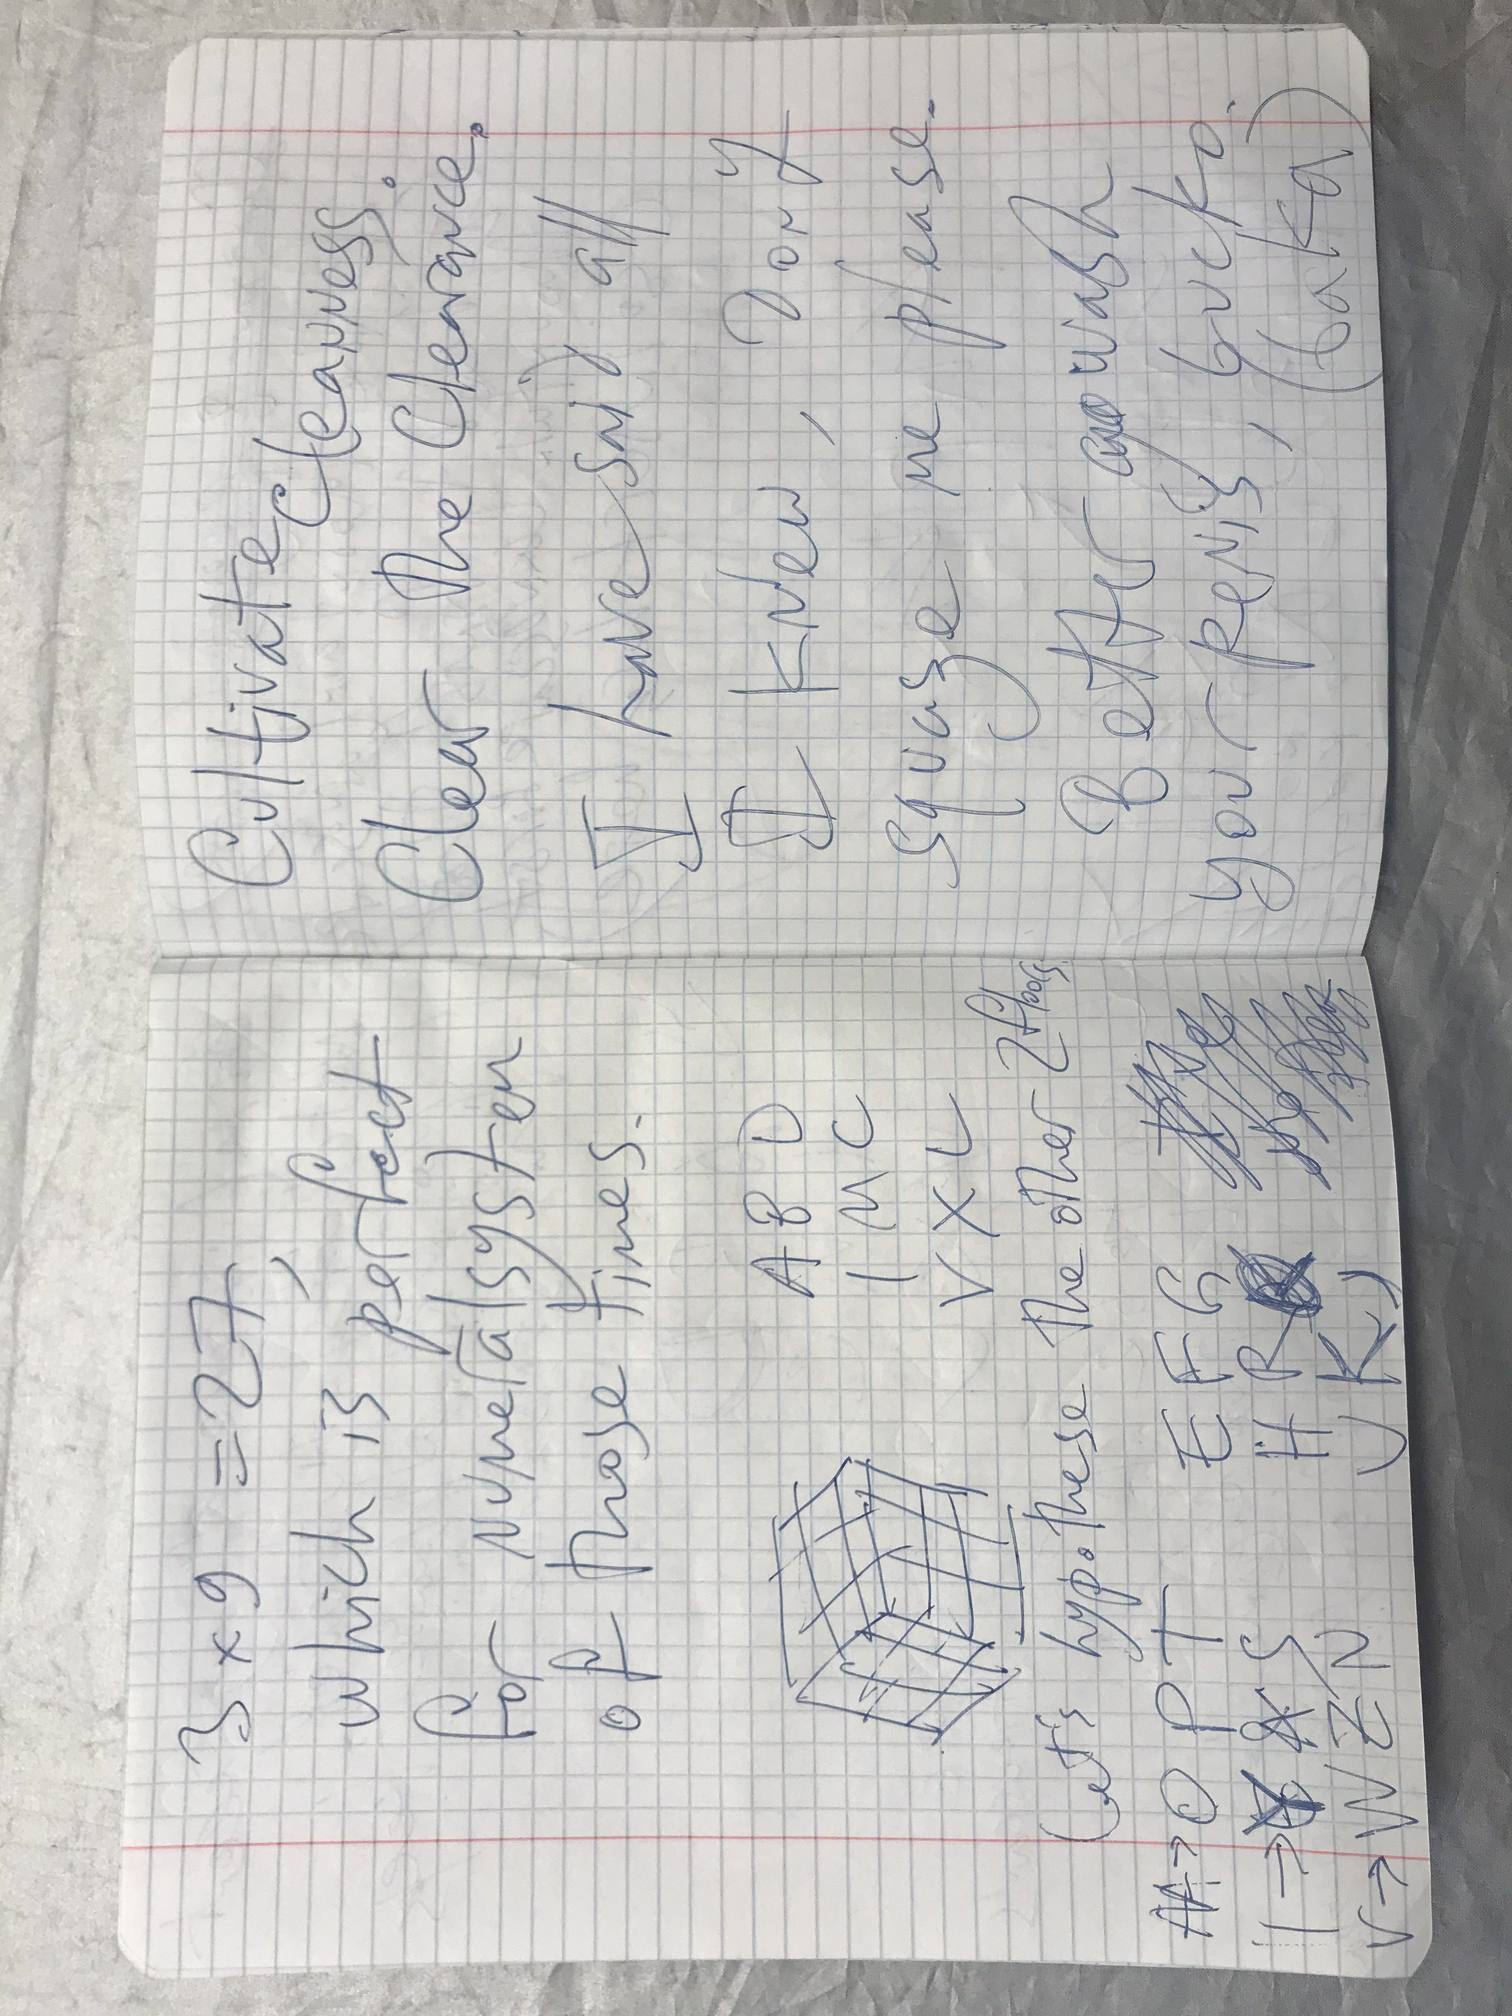 3 x 9 = 27,
which is perfect
for numeral system
of those times.
A B D
I M C
V X L
(Let's hypothese the other 2 floors.
A → O P T E F G
I → S H R
V → W Z N J K)
Cultivate cleanness.
Clear the Clearance.
I have said all
I knew, Don't
squaze me please.
Better wash
your penis, bucko.
(baka)